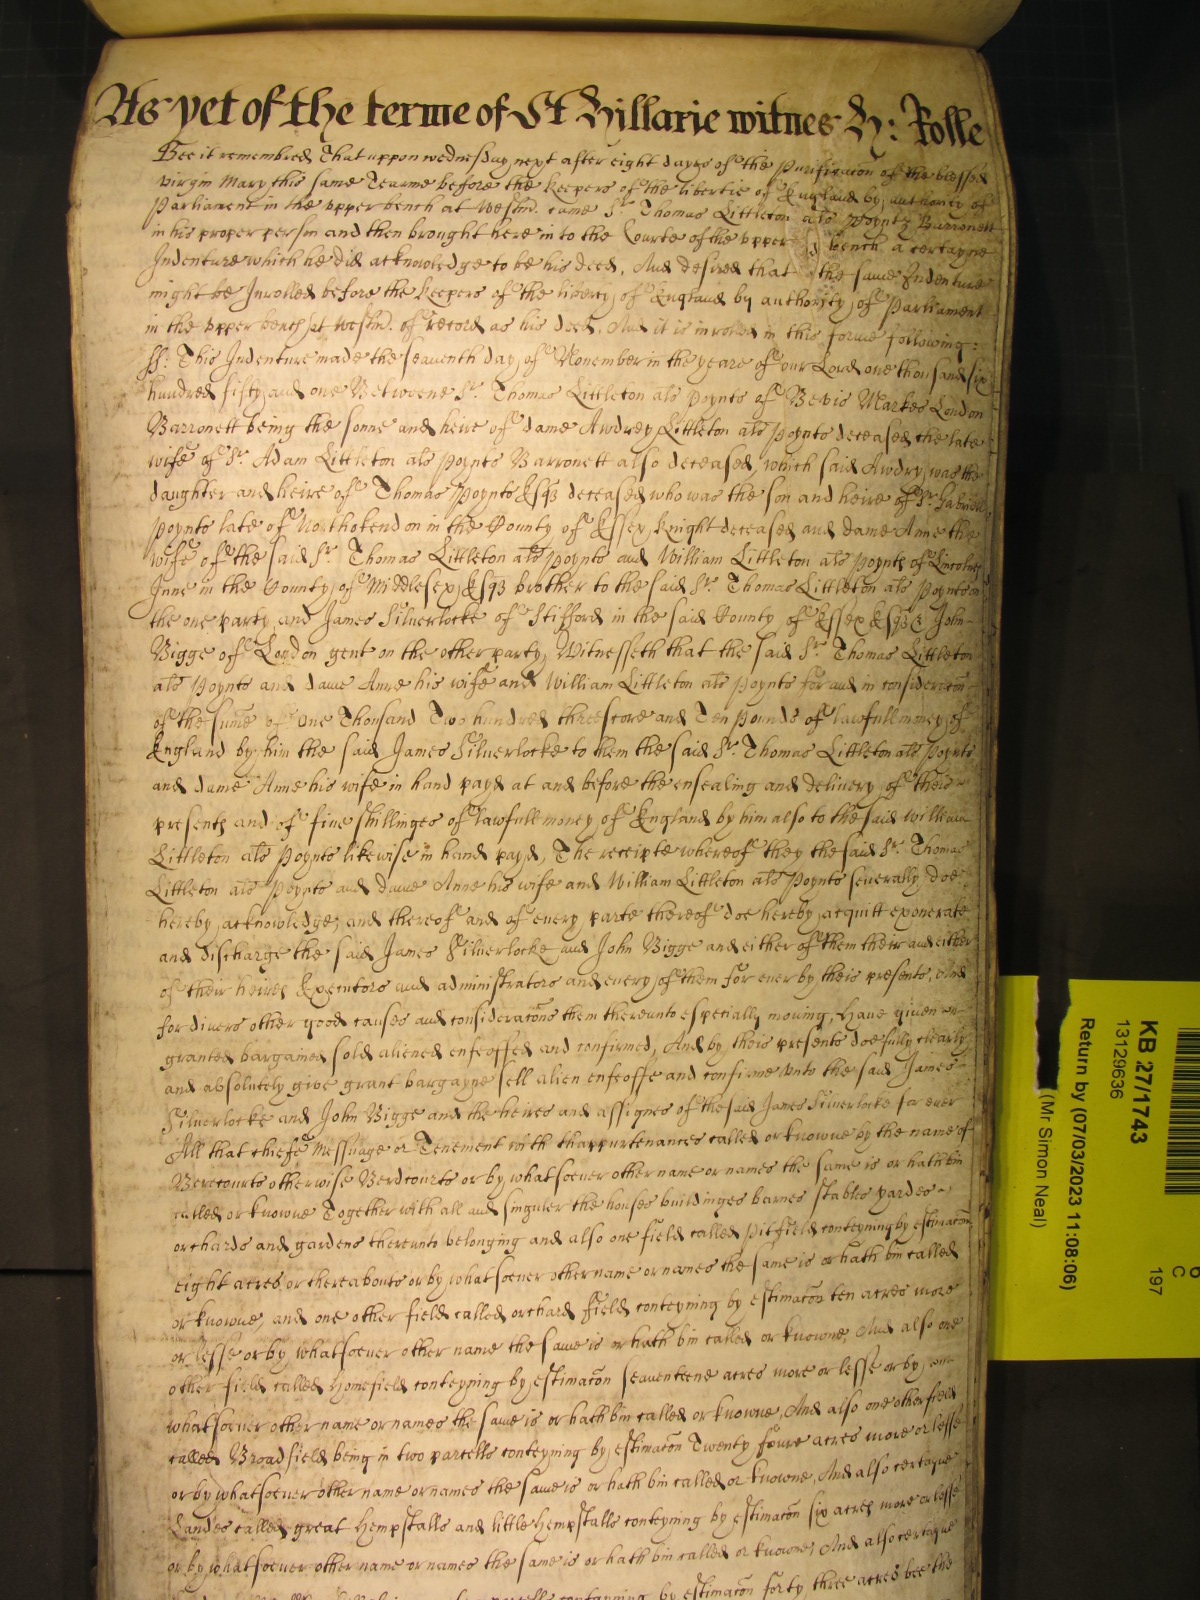 As yet of the terme of St Hillarie witnes H: Rolle
Bee it remembred That uppon wednesday next after eight dayes of the Purificacon of the blessed
virgin Mary this same Tearme before the keepers of the libertie of England by authority of
Parliament in the upper bench at Westmr. came Sr. Thomas Littleton als Poyntz Barronett
in his proper person and then brought here in to the Courte of the upper bench a certayne
Indenture which he did acknowledge to be his deed, And desired that the same Indenture
might be Inrolled before the keepers of the liberty of England by authority of Parliament
in the upper bench at Westmr. of record as his deed, And it is inrolled in this forme following:
ss: This Indenture made the seaventh day of November in the yeare of our Lord one thousand six
hundred fifty and one Betweene Sr. Thomas Littleton als Poynts of Bevis Markes London
Barronett being the sonne and heire of dame Awdrey Littleton als Poynts deceased the late
wife of Sr. Adam Littleton als Poynts Barronett also deceased, which said Awdry was the
daughter and heire of Thomas Poynts Esqz deceased who was the son and heire of Sr. Gabriell
Poynts late of Northokendon in the County of Essex Knight deceased and dame Anne the
wife of the said Sr. Thomas Littleton als Poynts and William Littleton als Poynts of Lincolnes
Inne in the County of Middlesex Esqz brother to the said Sr. Thomas Littleton als Poynts on
the one party and James Silverlocke of Stifford in the said County of Essex Esqz & John
Bigge of London gent on the other party, Witnesseth that the said Sr. Thomas Littleton
als Poynts and dame Anne his wife and William Littleton als Poynts for and in consideracon
of the sume of One Thousand Two hundred threescore and Ten Pounds of lawfull money of
England by him the said James Silverlocke to them the said Sr. Thomas Littleton als Poynts
and dame Anne his wife in hand payd at and before the ensealing and delivery of theis
presents and of five shillinges of lawfull money of England by him also to the said William
Littleton als Poynts likewise in hand payd, The receipte whereof they the said Sr. Thomas
Littleton als Poynts and dame Anne his wife and William Littleton als Poynts severally doe
hereby acknowledge, and thereof and of every parte thereof doe hereby acquitt exonerate
and discharge the said James Silverlocke and John Bigge and either of them their and either
of their heires Executors and administrators and every of them for ever by theis presents, And
for divers other good causes and consideracons them thereunto especially moving, Have given
granted bargained sold aliened enfeoffed and confirmed, And by theis presents doe fully clearly
and absolutely give grant bargayne sell alien enfeoffe and confirme unto the said James
Silverlocke and John Bigge and the heires and assignes of the said James Silverlocke for ever
All that chiefe Messuage or Tenement with thappurtenances called or knowne by the name of
Berecourts otherwise Berdcourts or by what soever other name or names the same is or hath bin
called or knowne Together with all and singuler the houses buildinges barnes stables yardes
orchards and gardens thereunto belonging and also one field called Pitfield conteyning by estimacon
eight acres or thereabouts or by what soever other name or names the same is or hath bin called
or knowne, and one other field called orchard field conteyning by estimacon ten acres more
or lesse or by what soever other name the same is or hath bin called or knowne, And also one
other field called Homefield conteyning by estimacon seaventeene acres more or lesse or by
what soever other name or names the same is or hath bin called or knowne, And also one other field
called Broadfield being in two parcells conteyning by estimacon Twenty foure acres more or lesse
or by what soever other name or names the same is or hath bin called or knowne, And also certayne
Landes called great Hempstalls and little Hempstalls conteyning by estimacon six acres more or lesse
or by what soever other name or names the same is or hath bin called or knowne, And also certayne
parcells contayning by estimacon forty three acres bee the
KB 27/1743
13129636
Return by (07/03/2023 11:08:06)
(Mr Simon Neal)
197
C
6